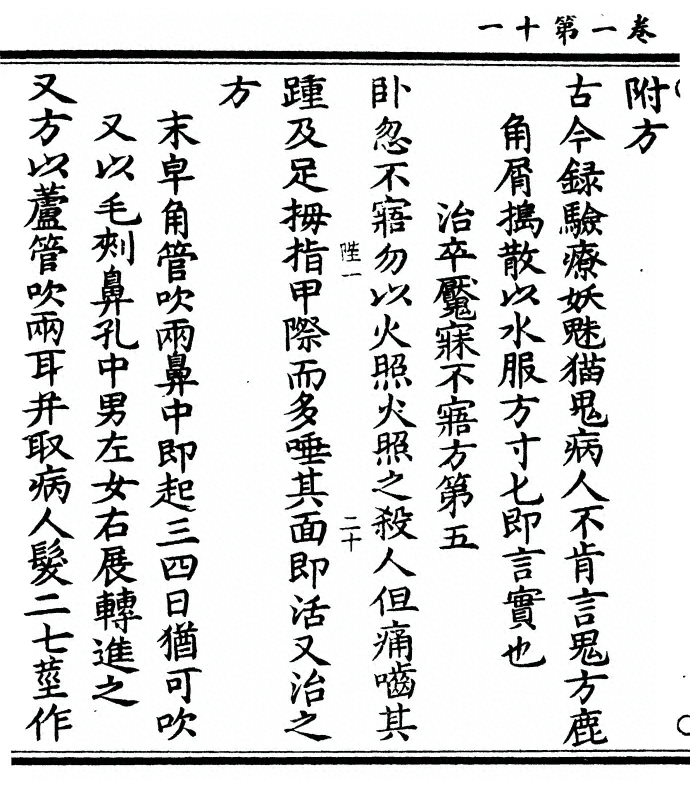 卷一第十一
附方
古今録驗療妖魅猫鬼病人不肯言鬼方鹿
角屑搗散以水服方寸七即言實也
治卒魘寐不寤方第五
卧忽不寤勿以火照火照之殺人但痛嚙其
陞一
二十
踵及足拇指甲際而多唾其面即活又治之
方
末皁角管吹兩鼻中即起三四日猶可吹
又以毛刾鼻孔中男左女右展轉進之
又方以蘆管吹兩耳并取病人髮二七莖作